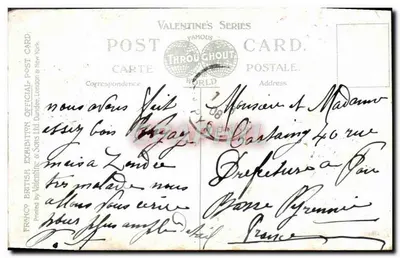 VALENTINE'S SERIES
FAMOUS
POST CARD.
THROUGHOUT
CARTE POSTALE.
THE WORLD
Correspondence Address
FRANCO BRITISH EXHIBITION OFFICIAL POST CARD.
Printed by VALENTINE & SONS Ltd. Dundee, London & New York
nous avons fait
assez bon voyage
mais a
tres malade nous
allons vous écrire
plus ample
Monsieur et Madame
40 rue
Prefecture a Pau
Basse Pyrennée
France